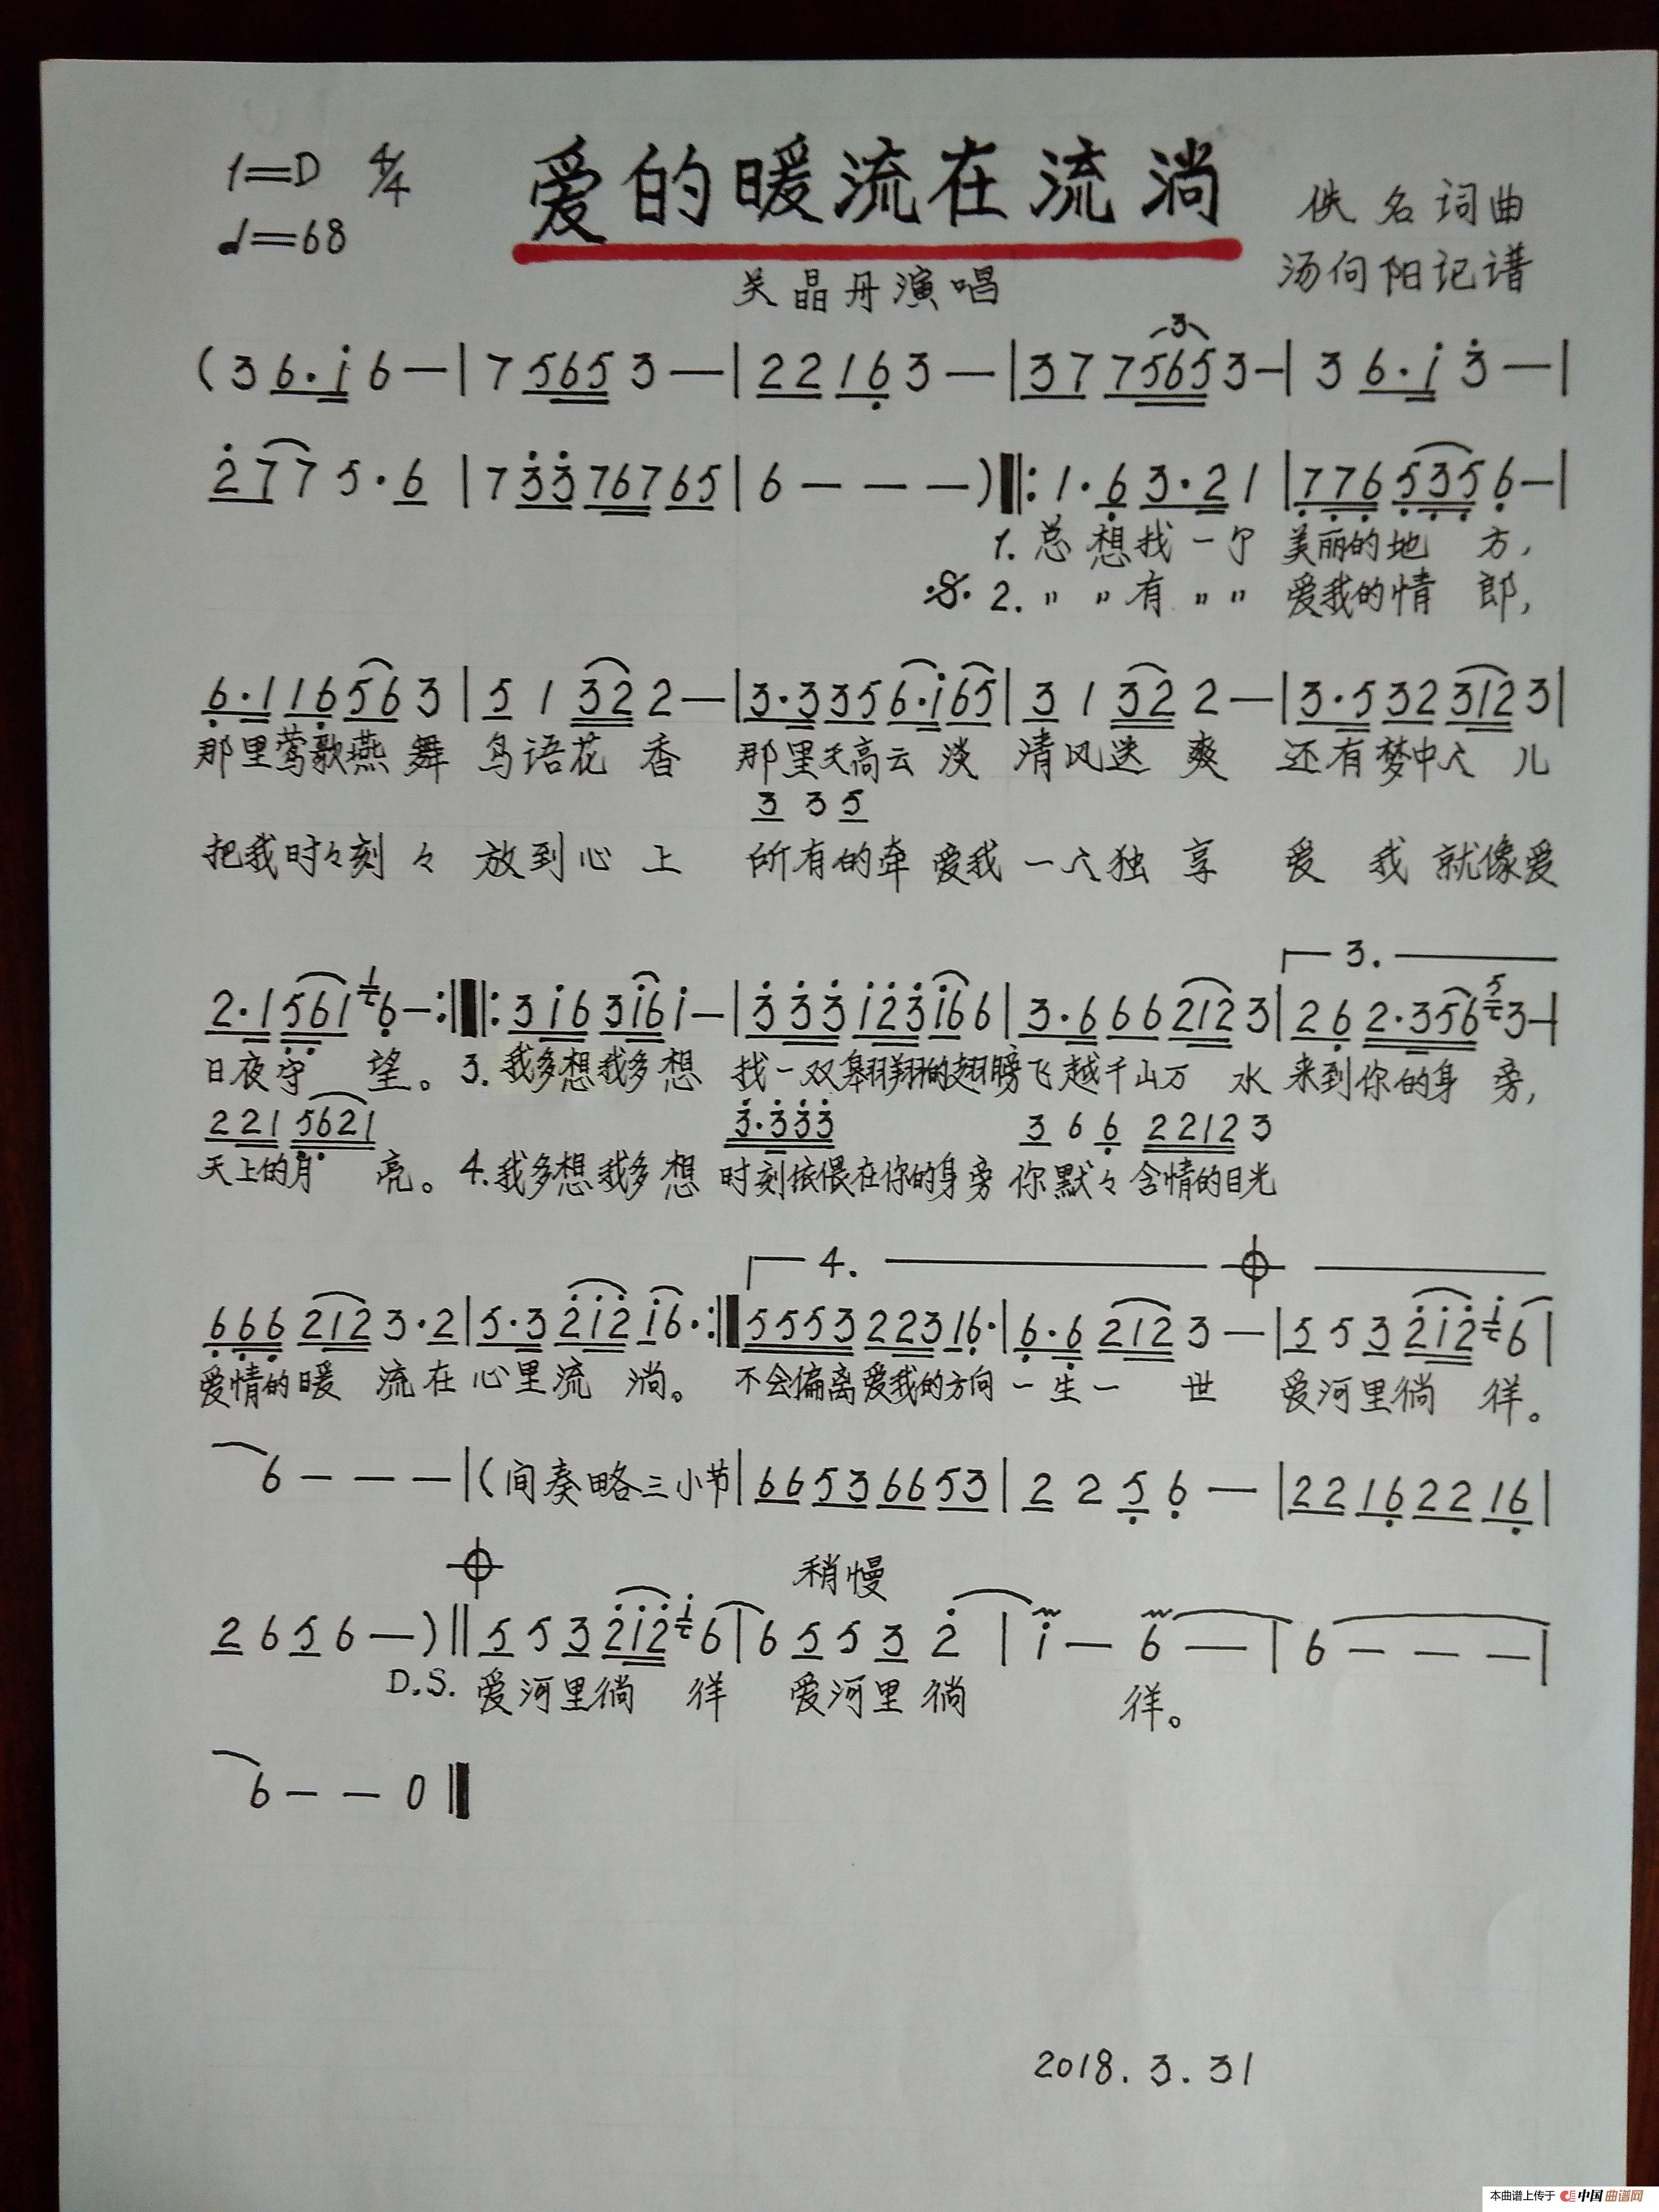 1=D 4/4 爱的暖流在流淌 佚名词曲
♩=68 汤向阳记谱
关晶丹演唱
(3 6·i 6 — | 7 565 3 — | 22 16 3 — | 37 7565 3 — | 3 6·i 3 — |
277 5·6 | 7 33 767 65 | 6 — — — ) ‖: 1·6 3·2 1 | 776 535 6 — |
1. 总想找一个 美丽的地 方,
𝄋 2. 〃 〃 有 〃 〃 爱我的情 郎,
6·1 16 56 3 | 5 1 32 2 — | 3·3 35 6·i 65 | 3 1 32 2 — | 3·5 32 312 3 |
那里莺歌燕 舞 鸟语花 香 那里天高云 淡 清风送 爽 还有梦中人 儿
3 3 5
把我时々刻 々 放到心 上 所有的牵 爱我 一人独 享 爱 我 就像爱
3.
2·1 561 1 6 — :‖: 3 i6 3i6 i — | 3 33 i23 i66 | 3·6 66 212 3 | 26 2·356 5 3 — |
日夜守 望。 3. 我多想我多 想 找一双翱翔的翅膀 飞越千山万 水 来到你的身 旁,
221 5621 3·333 3 6 6 2212 3
天上的月 亮。 4. 我多想我多 想 时刻依偎在你的身旁 你默々含情的目光
4. 𝄌
666 212 3·2 | 5·3 2i2 i6· :‖ 5553 223 16· | 6·6 212 3 — | 5 5 3 2i2 i 6 |
爱情的暖 流在 心里流 淌。 不会偏离爱我的方向 一生一 世 爱河里徜 徉。
6 — — — | (间奏略三小节 | 66 53 66 53 | 2 2 5 6 — | 22 16 22 16 |
𝄌 稍慢
2 6 5 6 — ) ‖ 5 5 3 2i2 i 6 | 6 5 5 3 2 | i — 6 — | 6 — — — |
D.S. 爱河里徜 徉 爱河里 徜 徉。
6 — — 0 ‖
2018.3.31
本曲谱上传于 中国曲谱网